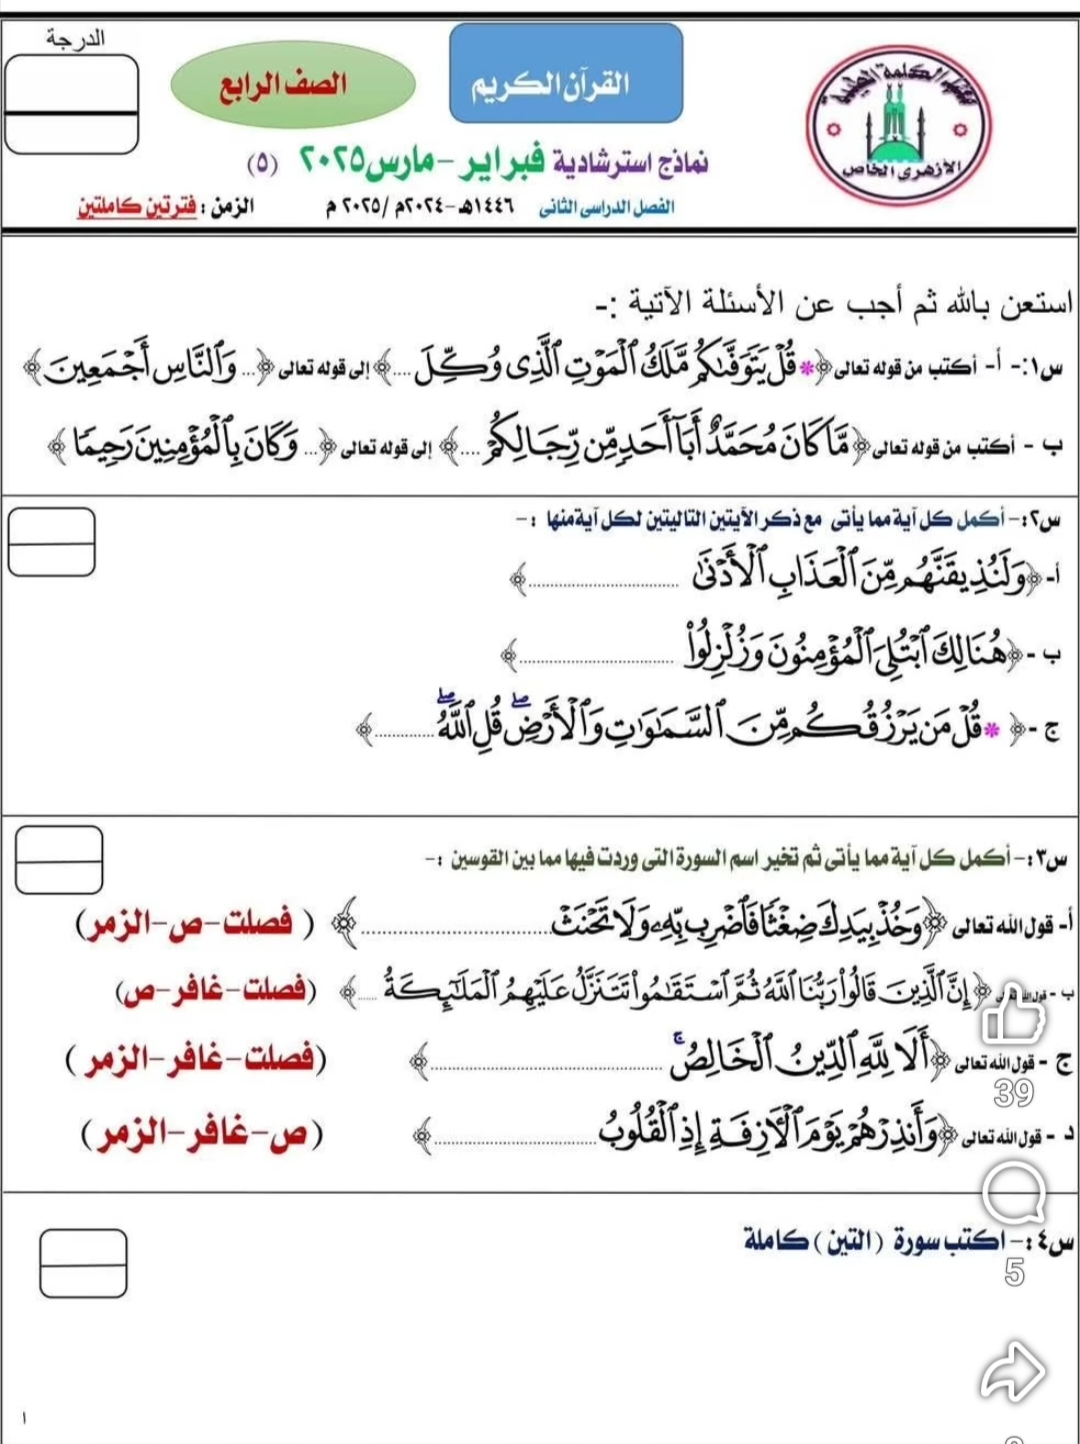 الدرجة
القرآن الكريم
الصف الرابع
الأزهرى الخاص
نماذج استرشادية فبراير - مارس٢٠٢٥ (٥)
الفصل الدراسى الثانى ١٤٤٦هـ -٢٠٢٤م /٢٠٢٥ م الزمن : فترتين كاملتين
استعن بالله ثم أجب عن الأسئلة الآتية :-
س١:- أ- أكتب من قوله تعالى ﴿* قُلْ يَتَوَفَّىٰكُم مَّلَكُ ٱلْمَوْتِ ٱلَّذِى وُكِّلَ ....﴾ إلى قوله تعالى ﴿... وَٱلنَّاسِ أَجْمَعِينَ ﴾
ب - أكتب من قوله تعالى ﴿ مَّا كَانَ مُحَمَّدٌ أَبَآ أَحَدٍ مِّن رِّجَالِكُمْ ....﴾ إلى قوله تعالى ﴿... وَكَانَ بِٱلْمُؤْمِنِينَ رَحِيمًا ﴾
س٢: - أكمل كل آية مما يأتى مع ذكر الآيتين التاليتين لكل آية منها : -
أ- ﴿وَلَنُذِيقَنَّهُم مِّنَ ٱلْعَذَابِ ٱلْأَدْنَىٰ ..............................﴾
ب - ﴿هُنَالِكَ ٱبْتُلِىَ ٱلْمُؤْمِنُونَ وَزُلْزِلُوا۟ ..............................﴾
ج - ﴿ * قُلْ مَن يَرْزُقُكُم مِّنَ ٱلسَّمَٰوَٰتِ وَٱلْأَرْضِ ۖ قُلِ ٱللَّهُ ۖ ............﴾
س٣: - أكمل كل آية مما يأتى ثم تخير اسم السورة التى وردت فيها مما بين القوسين : -
أ- قول الله تعالى ﴿وَخُذْ بِيَدِكَ ضِغْثًا فَٱضْرِب بِّهِۦ وَلَا تَحْنَثْ ..............................﴾ ( فصلت-ص-الزمر)
ب - قول الله تعالى ﴿ إِنَّ ٱلَّذِينَ قَالُوا۟ رَبُّنَا ٱللَّهُ ثُمَّ ٱسْتَقَٰمُوا۟ تَتَنَزَّلُ عَلَيْهِمُ ٱلْمَلَٰٓئِكَةُ ....﴾ (فصلت-غافر-ص)
ج - قول الله تعالى ﴿أَلَا لِلَّهِ ٱلدِّينُ ٱلْخَالِصُ ۚ ..............................﴾ (فصلت-غافر-الزمر )
د - قول الله تعالى ﴿وَأَنذِرْهُمْ يَوْمَ ٱلْآزِفَةِ إِذِ ٱلْقُلُوبُ ..............................﴾ (ص-غافر-الزمر )
39
س٤: - اكتب سورة ( التين ) كاملة
5
١